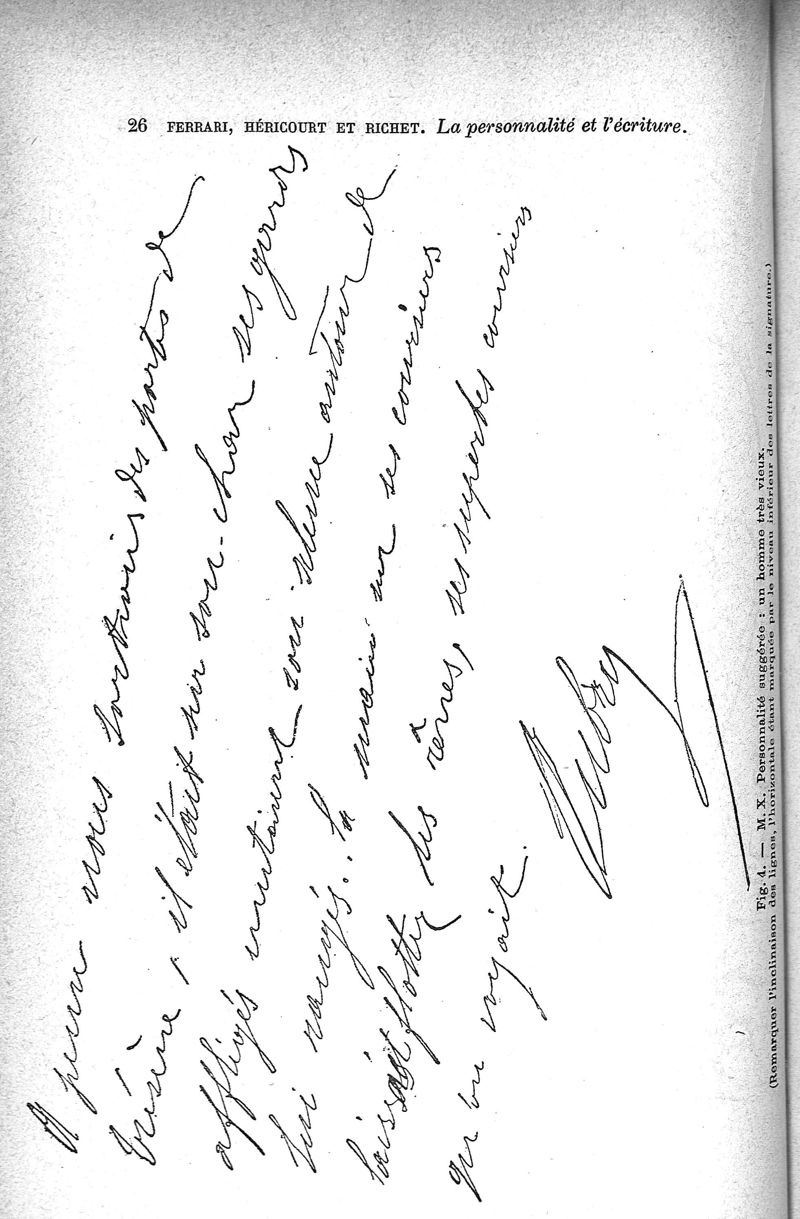 26 FERRARI, HÉRICOURT ET RICHET. La personnalité et l'écriture.
A peine nous sortions des portes de
Trésène, il était sur son char ses gardes
affligés imitaient son silence autour de
lui rangés.. la main sur ses coursiers
laissait flotter les rênes, ses superbes coursiers
qu'on voyait.
Fig. 4. — M. X. Personnalité suggérée : un homme très vieux.
(Remarquer l'inclinaison des lignes, l'horizontale étant marquée par le niveau inférieur des lettres de la signature.)